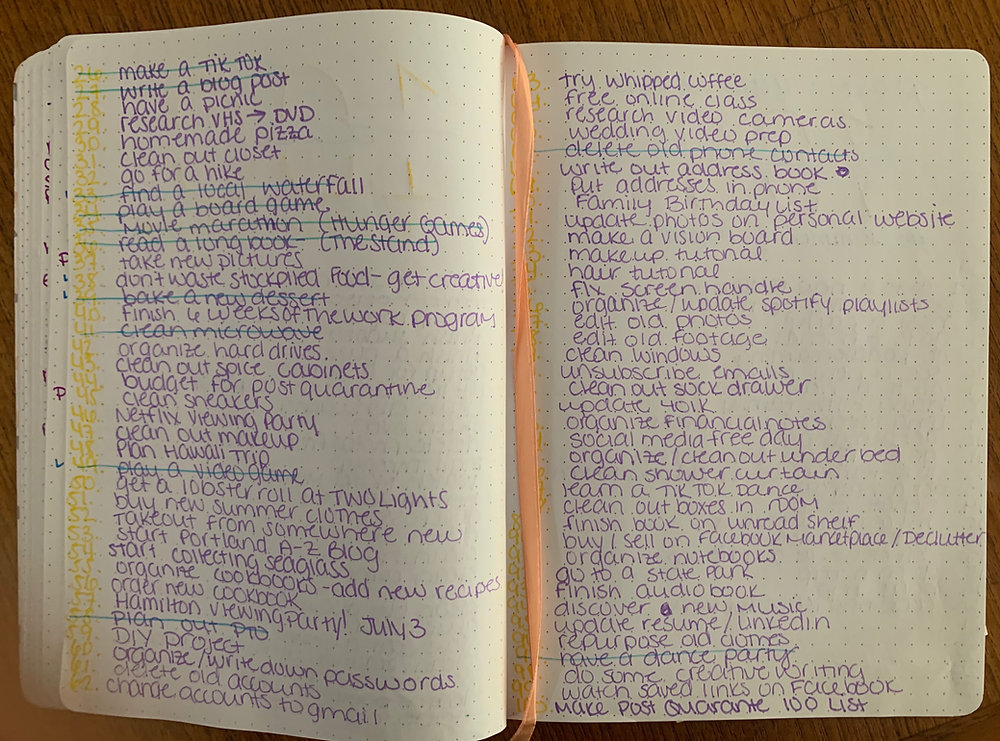 make a TIK TOK
write a blog post
have a picnic
research VHS → DVD
30. homemade pizza
31. clean out closet
go for a hike
find a local waterfall
play a board game
Movie marathon (Hunger Games)
read a long book- (The Stand)
take new pictures
38. dont waste stockpiled food- get creative!
bake a new dessert
finish 6 weeks of the work program
clean microwave
organize hard drives.
clean out spice cabinets
budget for post quarantine
clean sneakers
Netflix viewing Party
clean out makeup
Plan Hawaii Trip
play a video game
get a lobster roll at TWO Lights
buy new summer clothes
Takeout from somewhere new
start Portland A-Z Blog
start collecting seaglass
organize cookbooks -add new recipes
order new cookbook
Hamilton viewing Party! JULY 3
plan out
DIY project
organize/write down passwords.
61. delete old accounts
62. change accounts to gmail
try whipped coffee
free online class
research video cameras.
wedding video prep
delete old phone contacts
write out address book
Put addresses in phone
Family Birthday List
update photos on personal website
make a vision board
makeup tutorial
hair tutorial
fix screen handle
organize/update spotify playlists
edit old photos
edit old footage
clean windows
unsubscribe emails
clean out sock drawer
update 401K
organize financial notes
social media free day
organize/clean out under bed
clean shower curtain
learn a TIK TOK Dance
clean out boxes in DOM
finish book on unread shelf
buy/sell on Facebook Marketplace/Declutter
organize notebooks
go to a state Park
finish audiobook
discover new music
update resume/linkedin
repurpose old clothes
have a dance party
do some creative writing
watch saved links on Facebook
Make Post Quarante 100 List